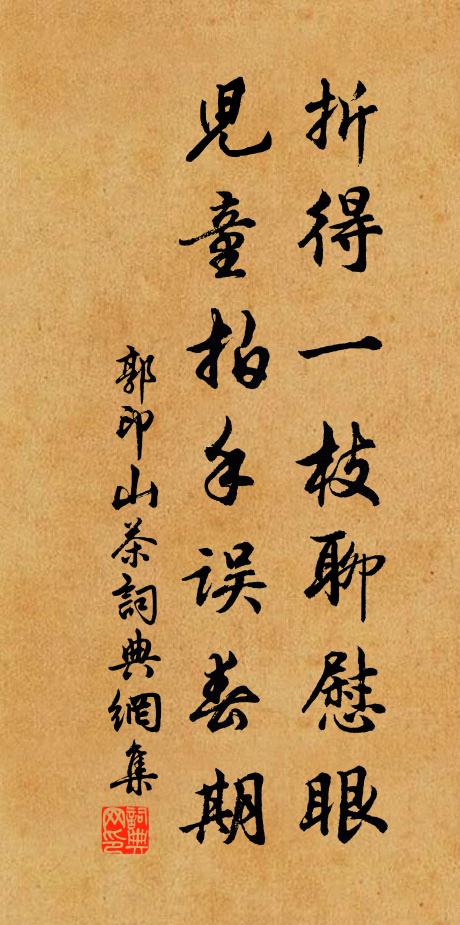 折得一枝聊慰眼
兒童拍手误春期
郭印山茶詞典網集
詞典网印